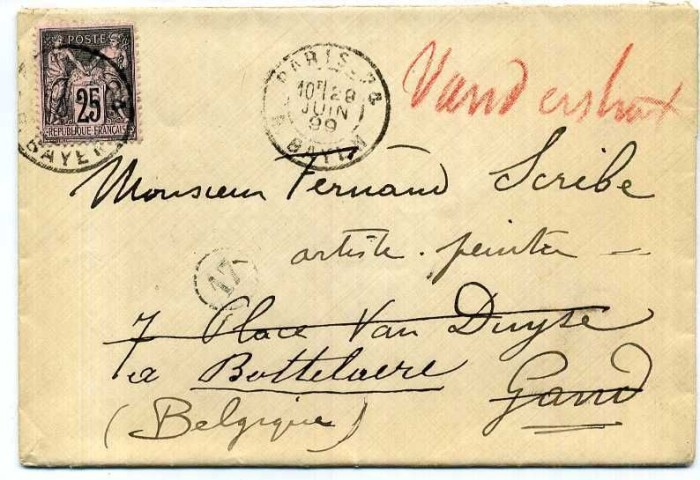 POSTE
25
REPUBLIQUE FRANÇAISE
PARIS
10E 28
JUIN
99
Vanderstraet
Monsieur Fernand Scribe
artiste-peintre
17
7 Place Van Duyse
à Bottelaere Gand
(Belgique)